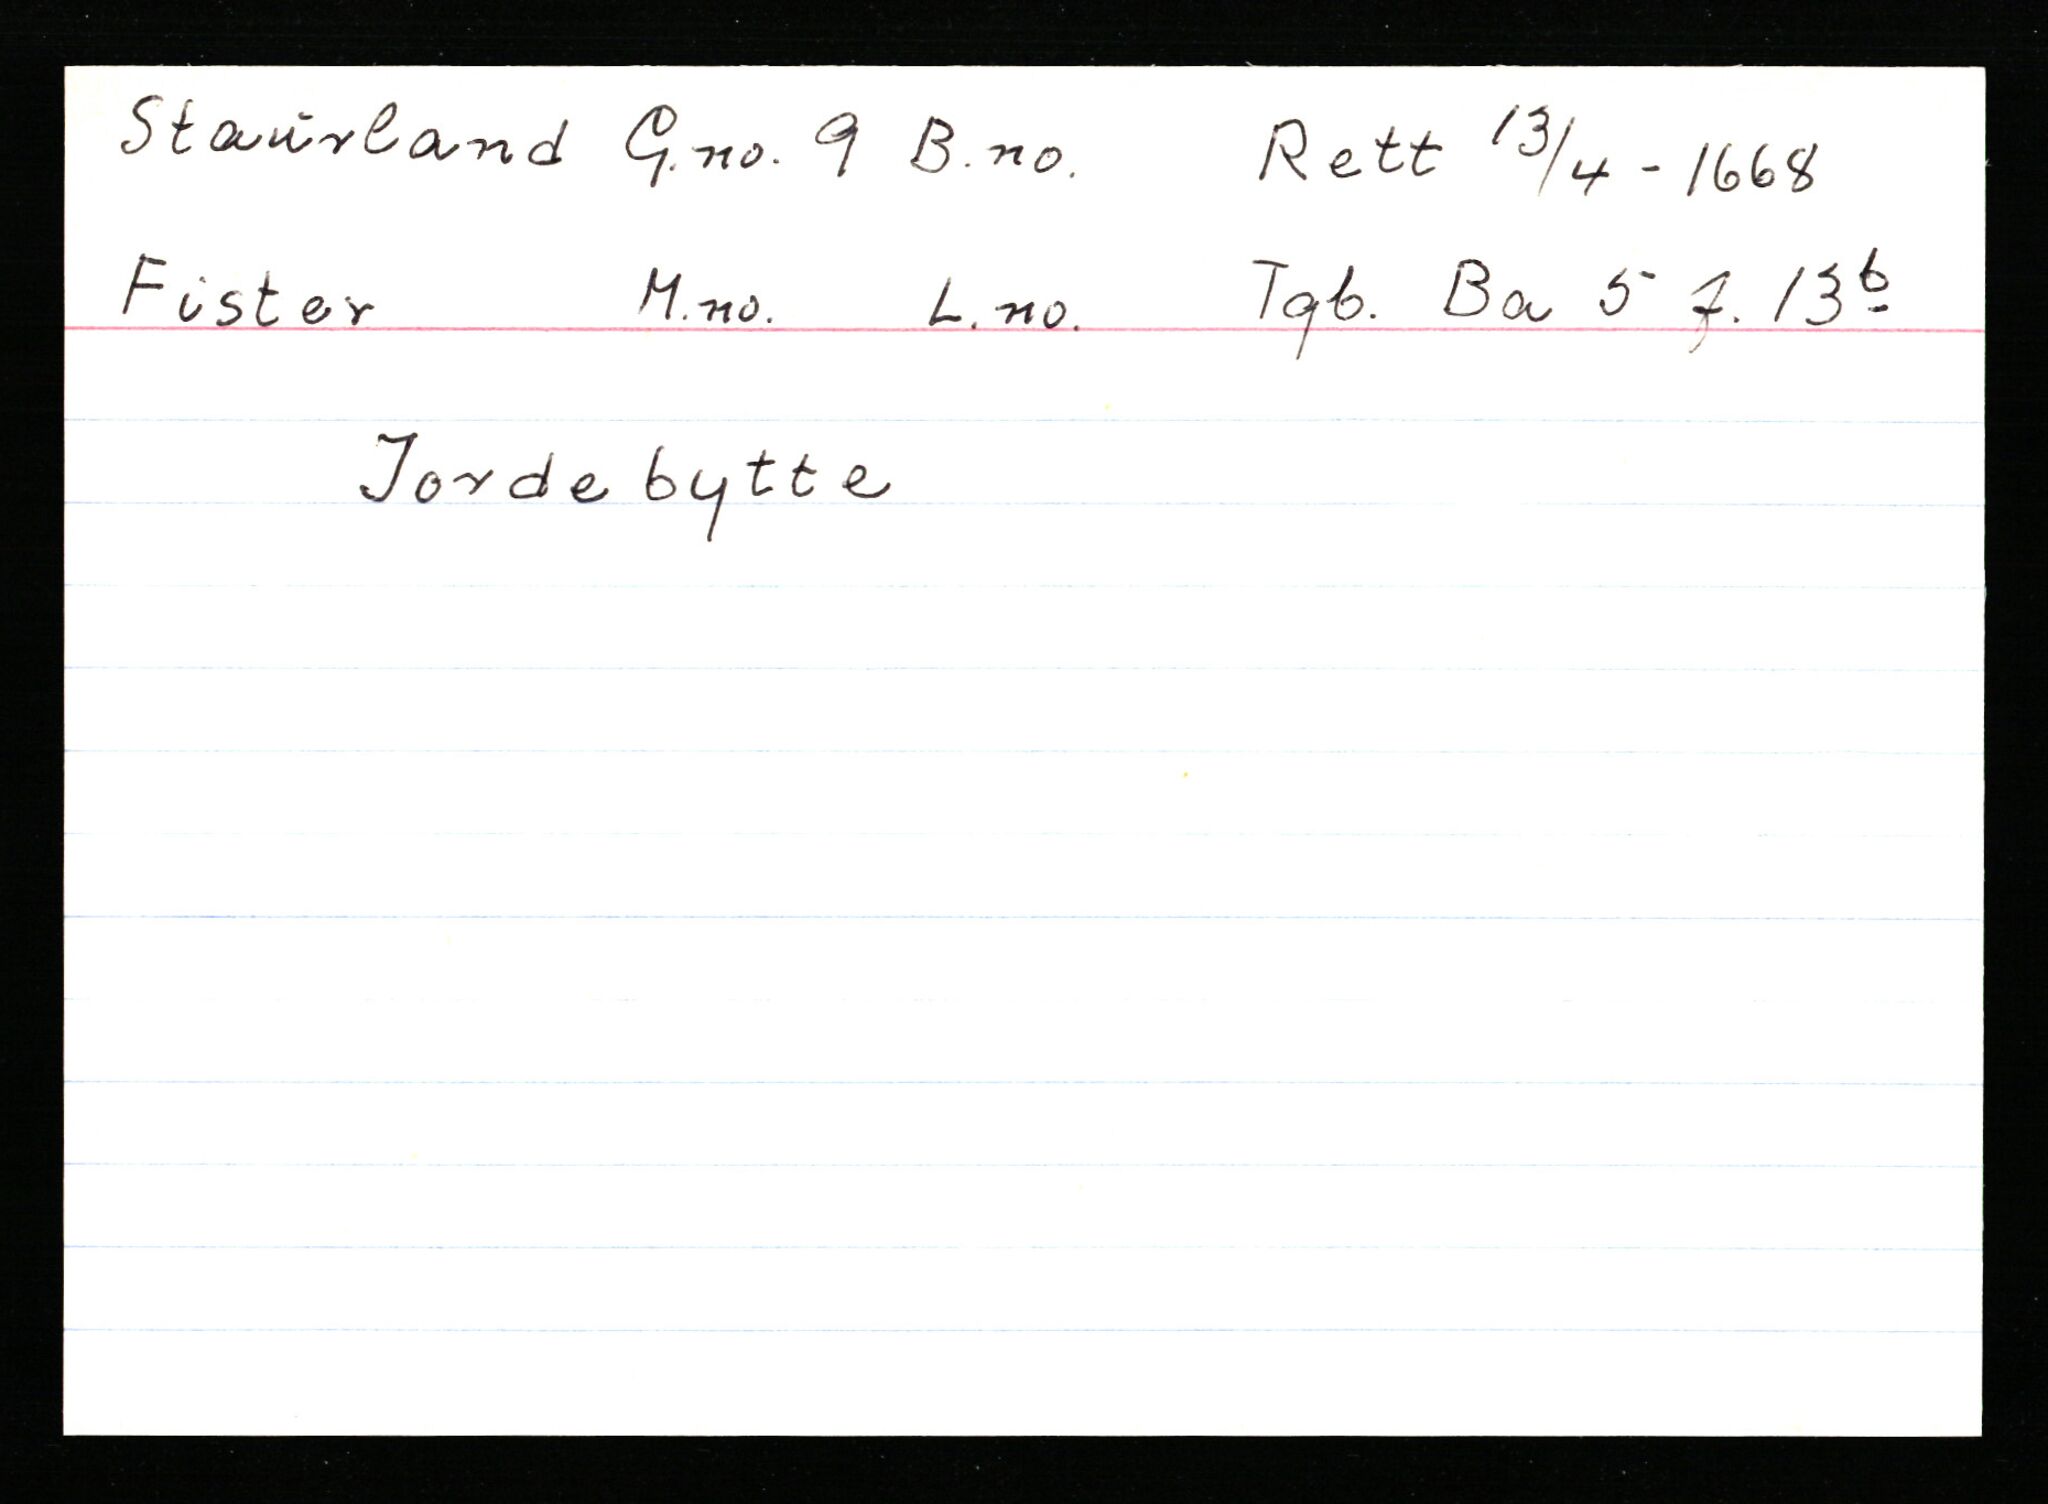 Staurland G.no. 9 B.no. Rett 13/4 - 1668
Fister M.no. L.no. Tgb. Ba 5 f. 13b
Jordebytte